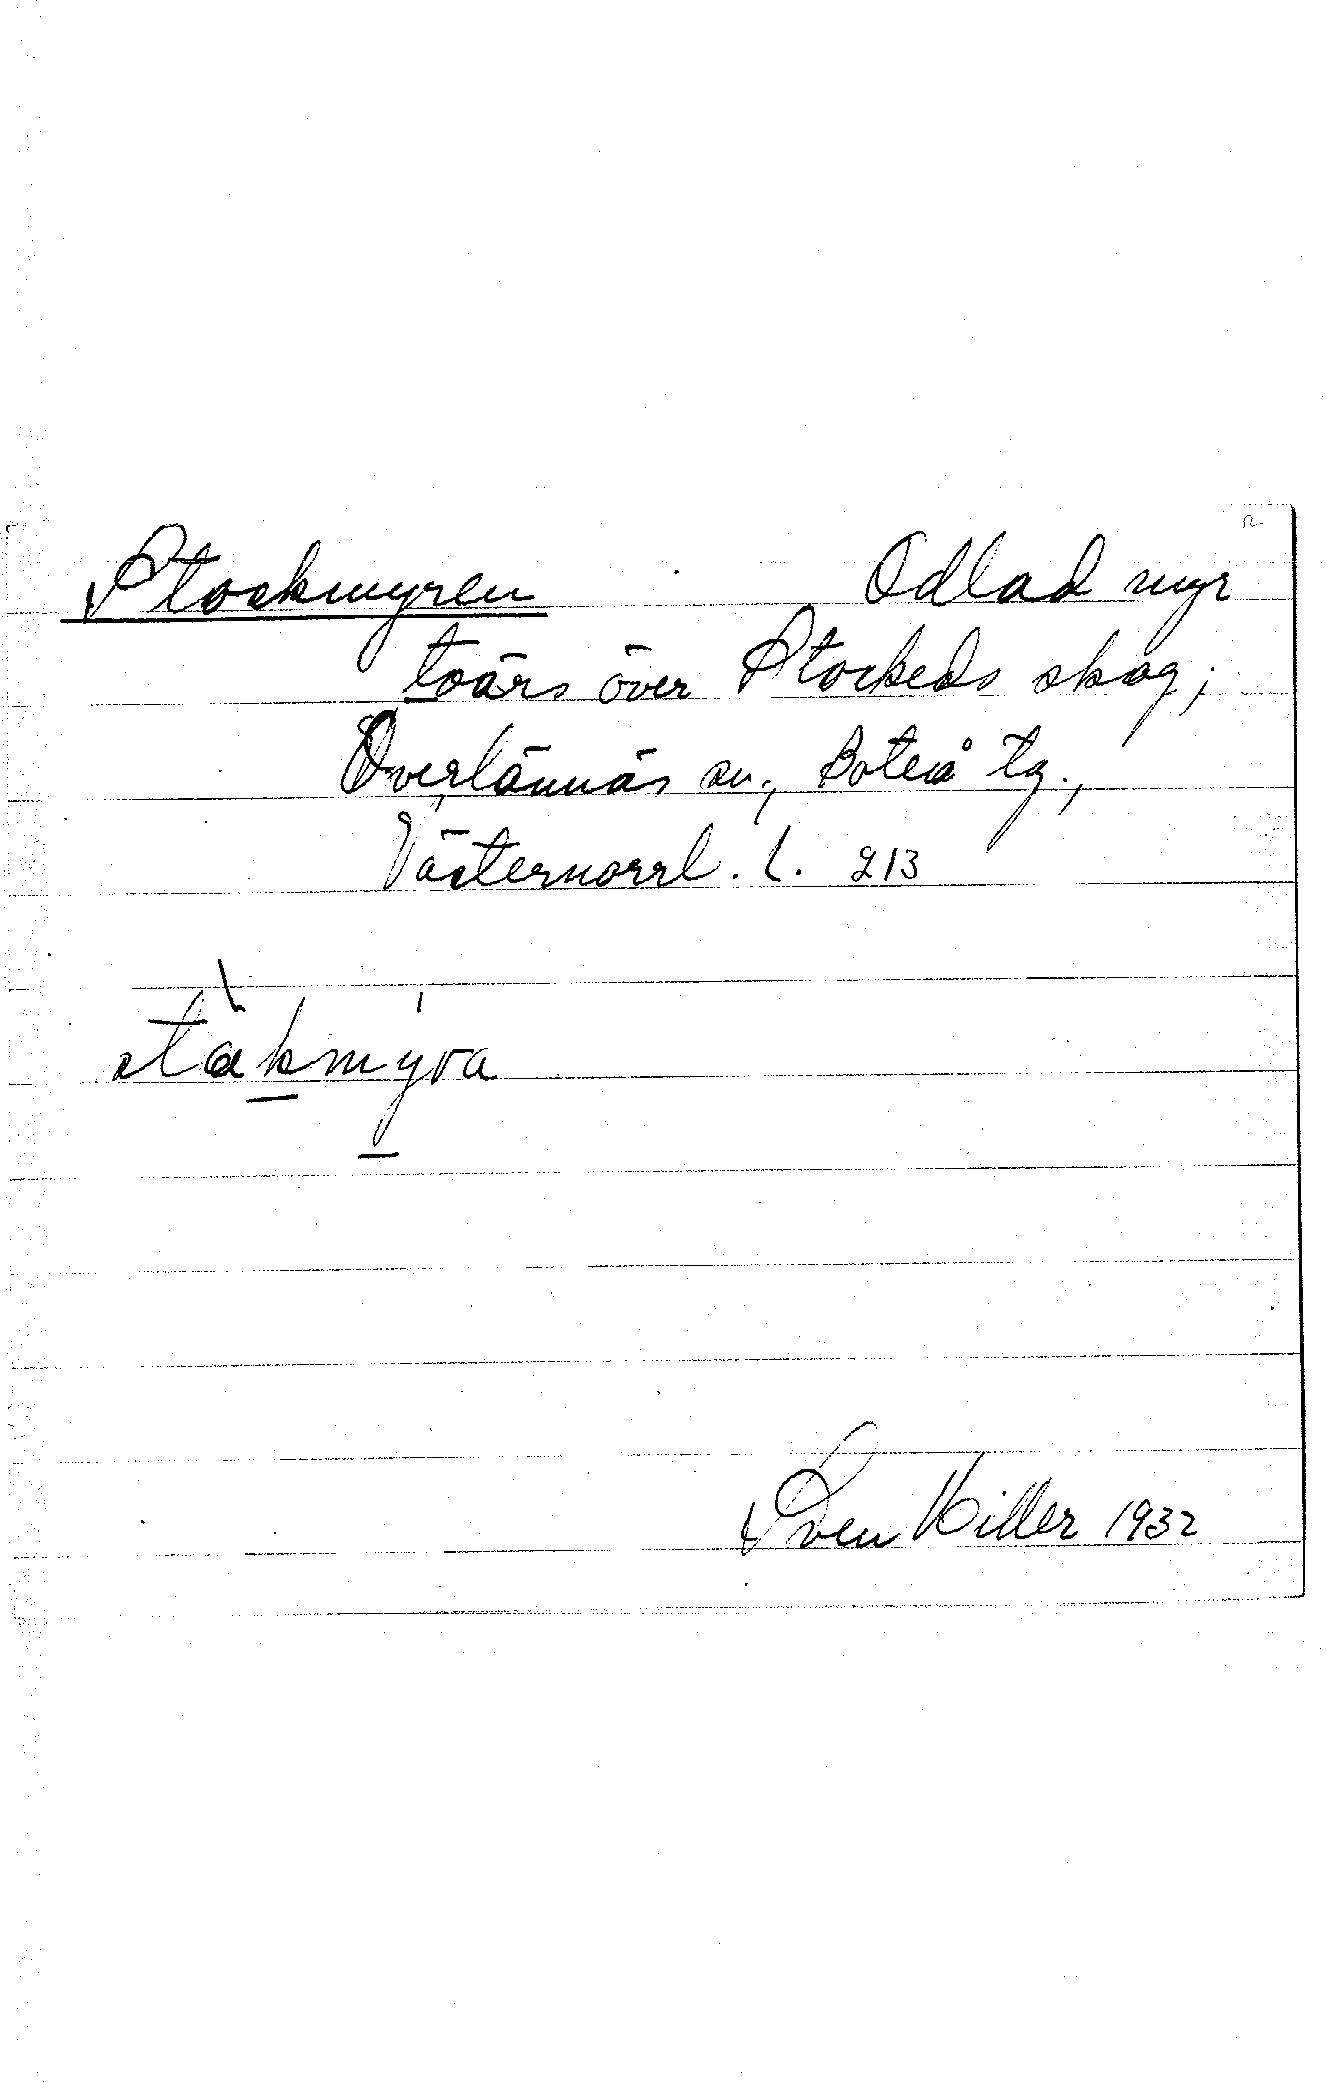 Stockmyren Odlad myr
tvärs över Stockeds skog;
Överlännäs sn., Boteå tg.,
Västernorrl. l. 213
ståkmyra
Sven Hiller 1932